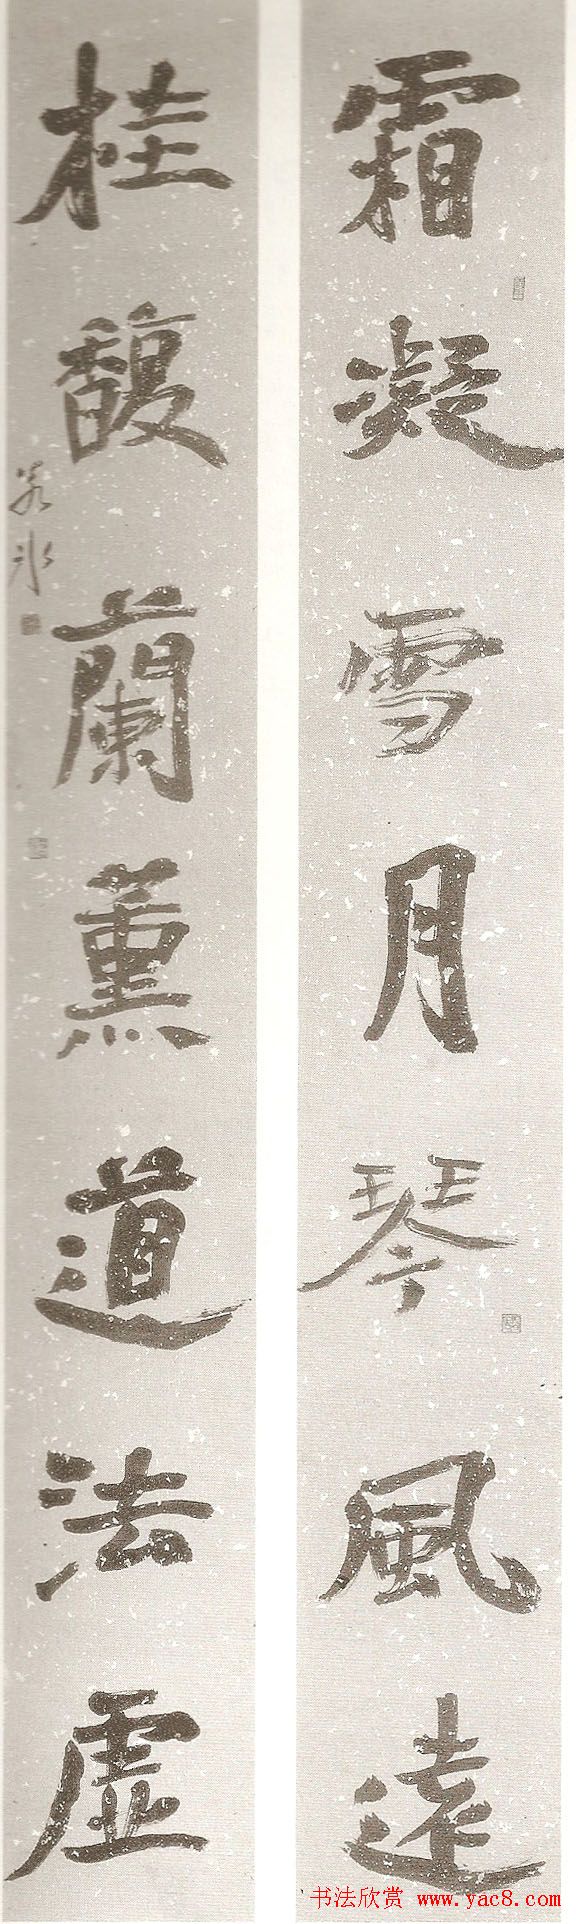 霜凝雪月琴風遠
桂馥蘭薰道法虛
若冰
书法欣赏 www.yac8.com